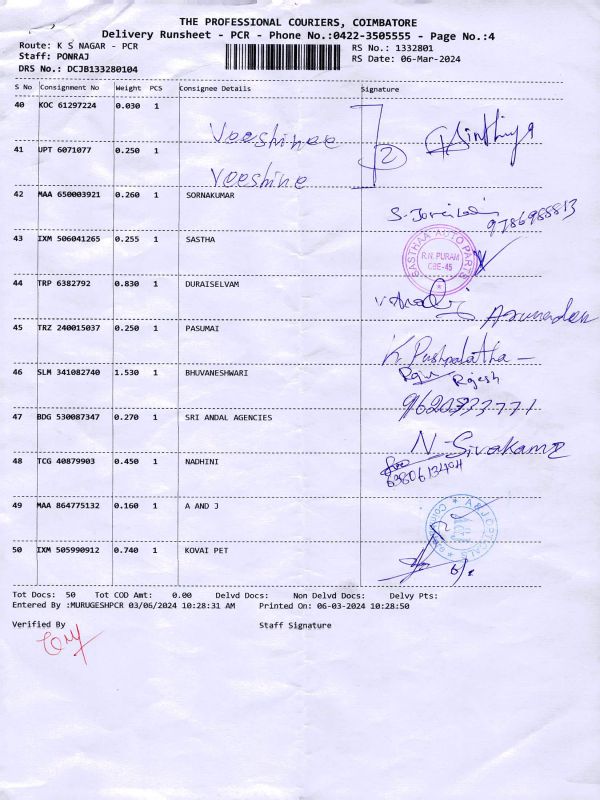 THE PROFESSIONAL COURIERS, COIMBATORE
Delivery Runsheet - PCR - Phone No.:0422-3505555 - Page No.:4
Route: K S NAGAR - PCR RS No.: 1332801
Staff: PONRAJ RS Date: 06-Mar-2024
DRS No.: DCJB133280104
S No Consignment No Weight PCS Consignee Details Signature
40 KOC 61297224 0.030 1
Veeshinee 2
41 UPT 6071077 0.250 1
Veeshine
42 MAA 650003921 0.260 1 SORNAKUMAR
9786988813
43 IXM 506041265 0.255 1 SASTHA
SASTHAA AUTO PARTS
R.N. PURAM
CBE-45
44 TRP 6382792 0.830 1 DURAISELVAM
45 TRZ 240015037 0.250 1 PASUMAI
K Pushpalatha
46 SLM 341082740 1.530 1 BHUVANESHWARI
Rajesh
47 BDG 530087347 0.270 1 SRI ANDAL AGENCIES
N-Sivakami
48 TCG 40879903 0.450 1 NADHINI
49 MAA 864775132 0.160 1 A AND J
50 IXM 505990912 0.740 1 KOVAI PET
Tot Docs: 50 Tot COD Amt: 0.00 Delvd Docs: Non Delvd Docs: Delvy Pts:
Entered By :MURUGESHPCR 03/06/2024 10:28:31 AM Printed On: 06-03-2024 10:28:50
Verified By Staff Signature